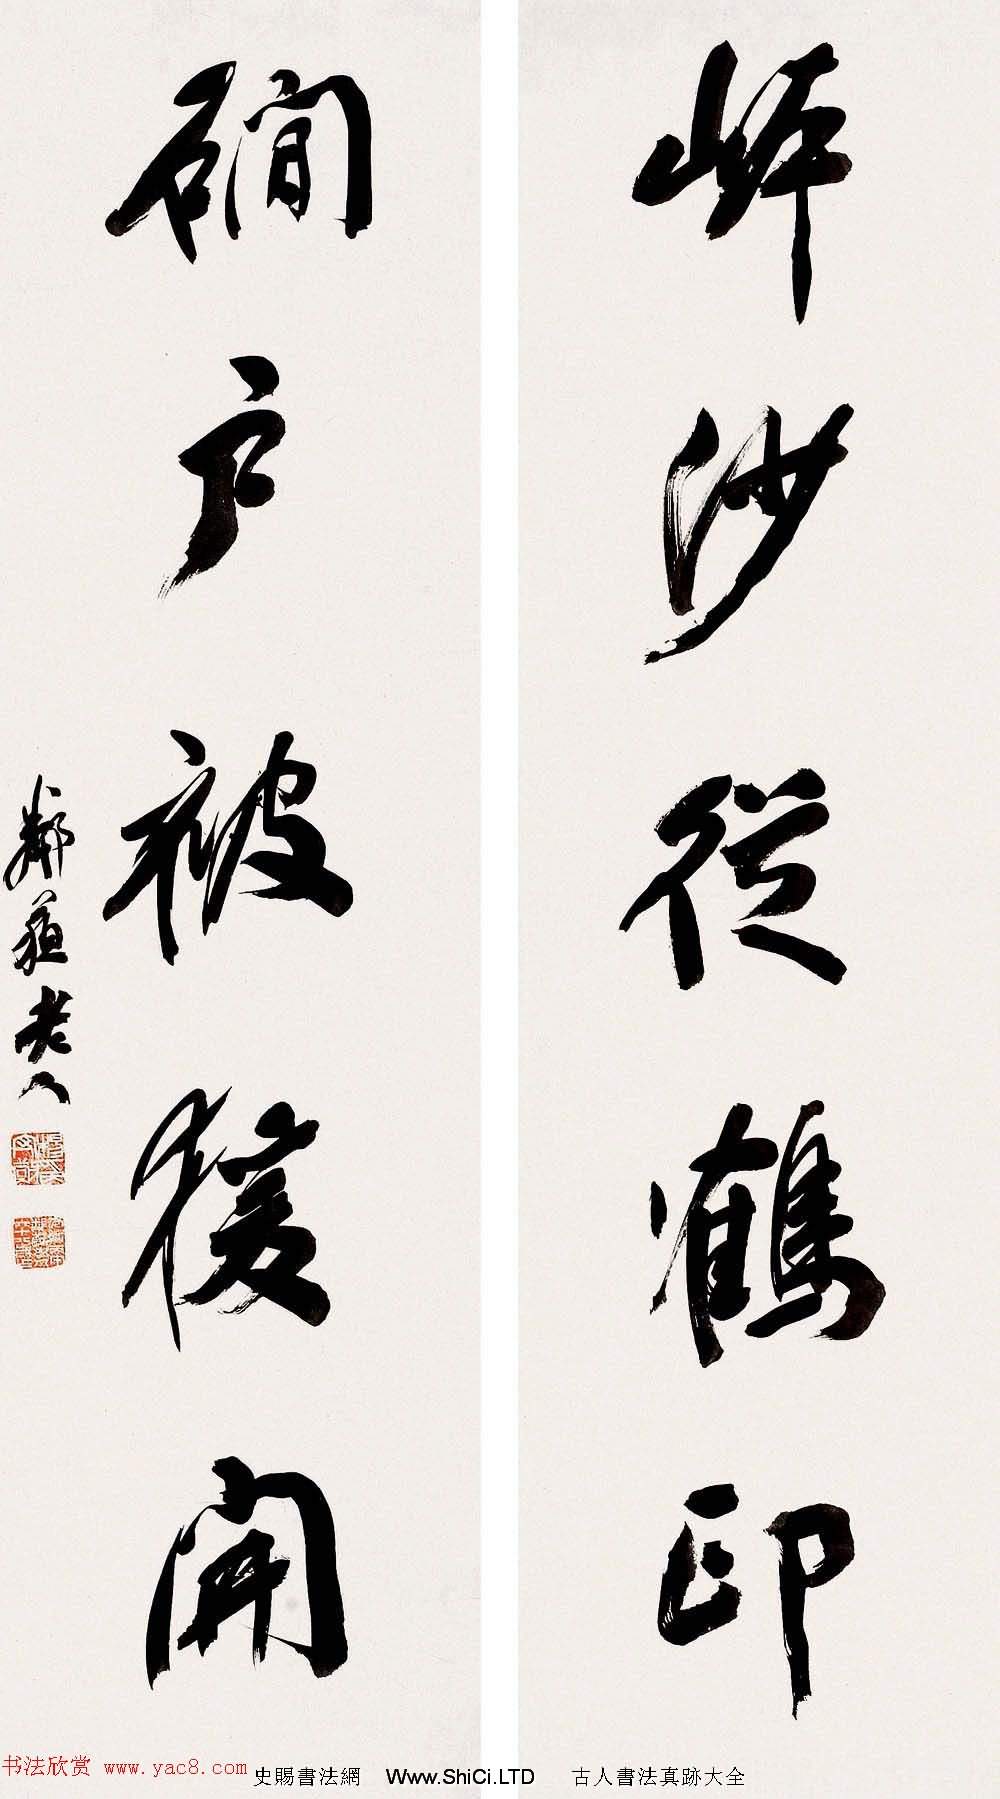 㟁沙從鶴印
磵戶被猨開
鄰蘇老人
书法欣赏 www.yac8.com
史賜書法網 Www.ShiCi.LTD 古人書法真跡大全